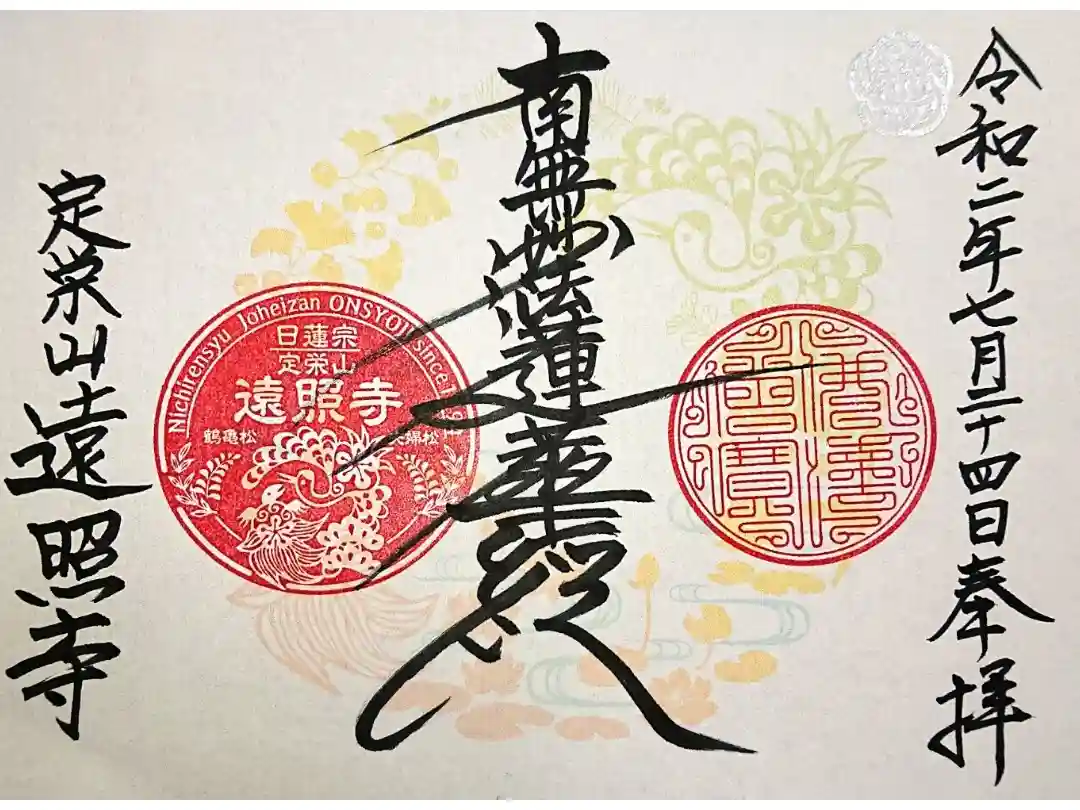 令和二年七月二十四日奉拝
南無妙法蓮華経
Nichirensyu Joheizan ONSYOJI since
日蓮宗
定栄山
遠照寺
鶴亀松
夫婦松
定栄山遠照寺